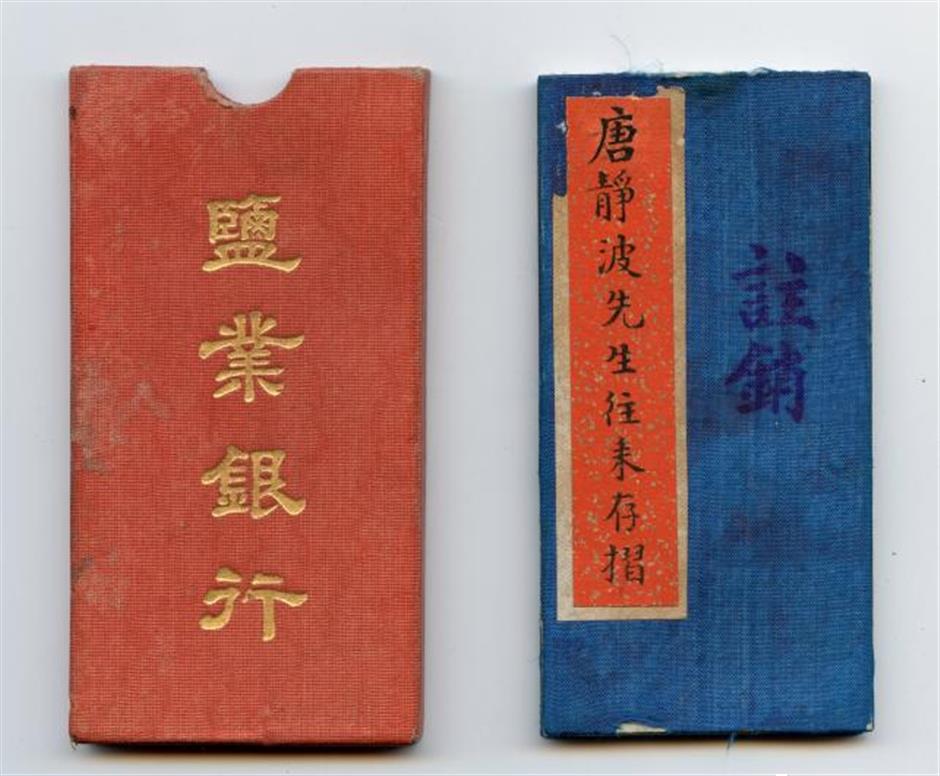 鹽業銀行
唐靜波先生往来存摺
註銷